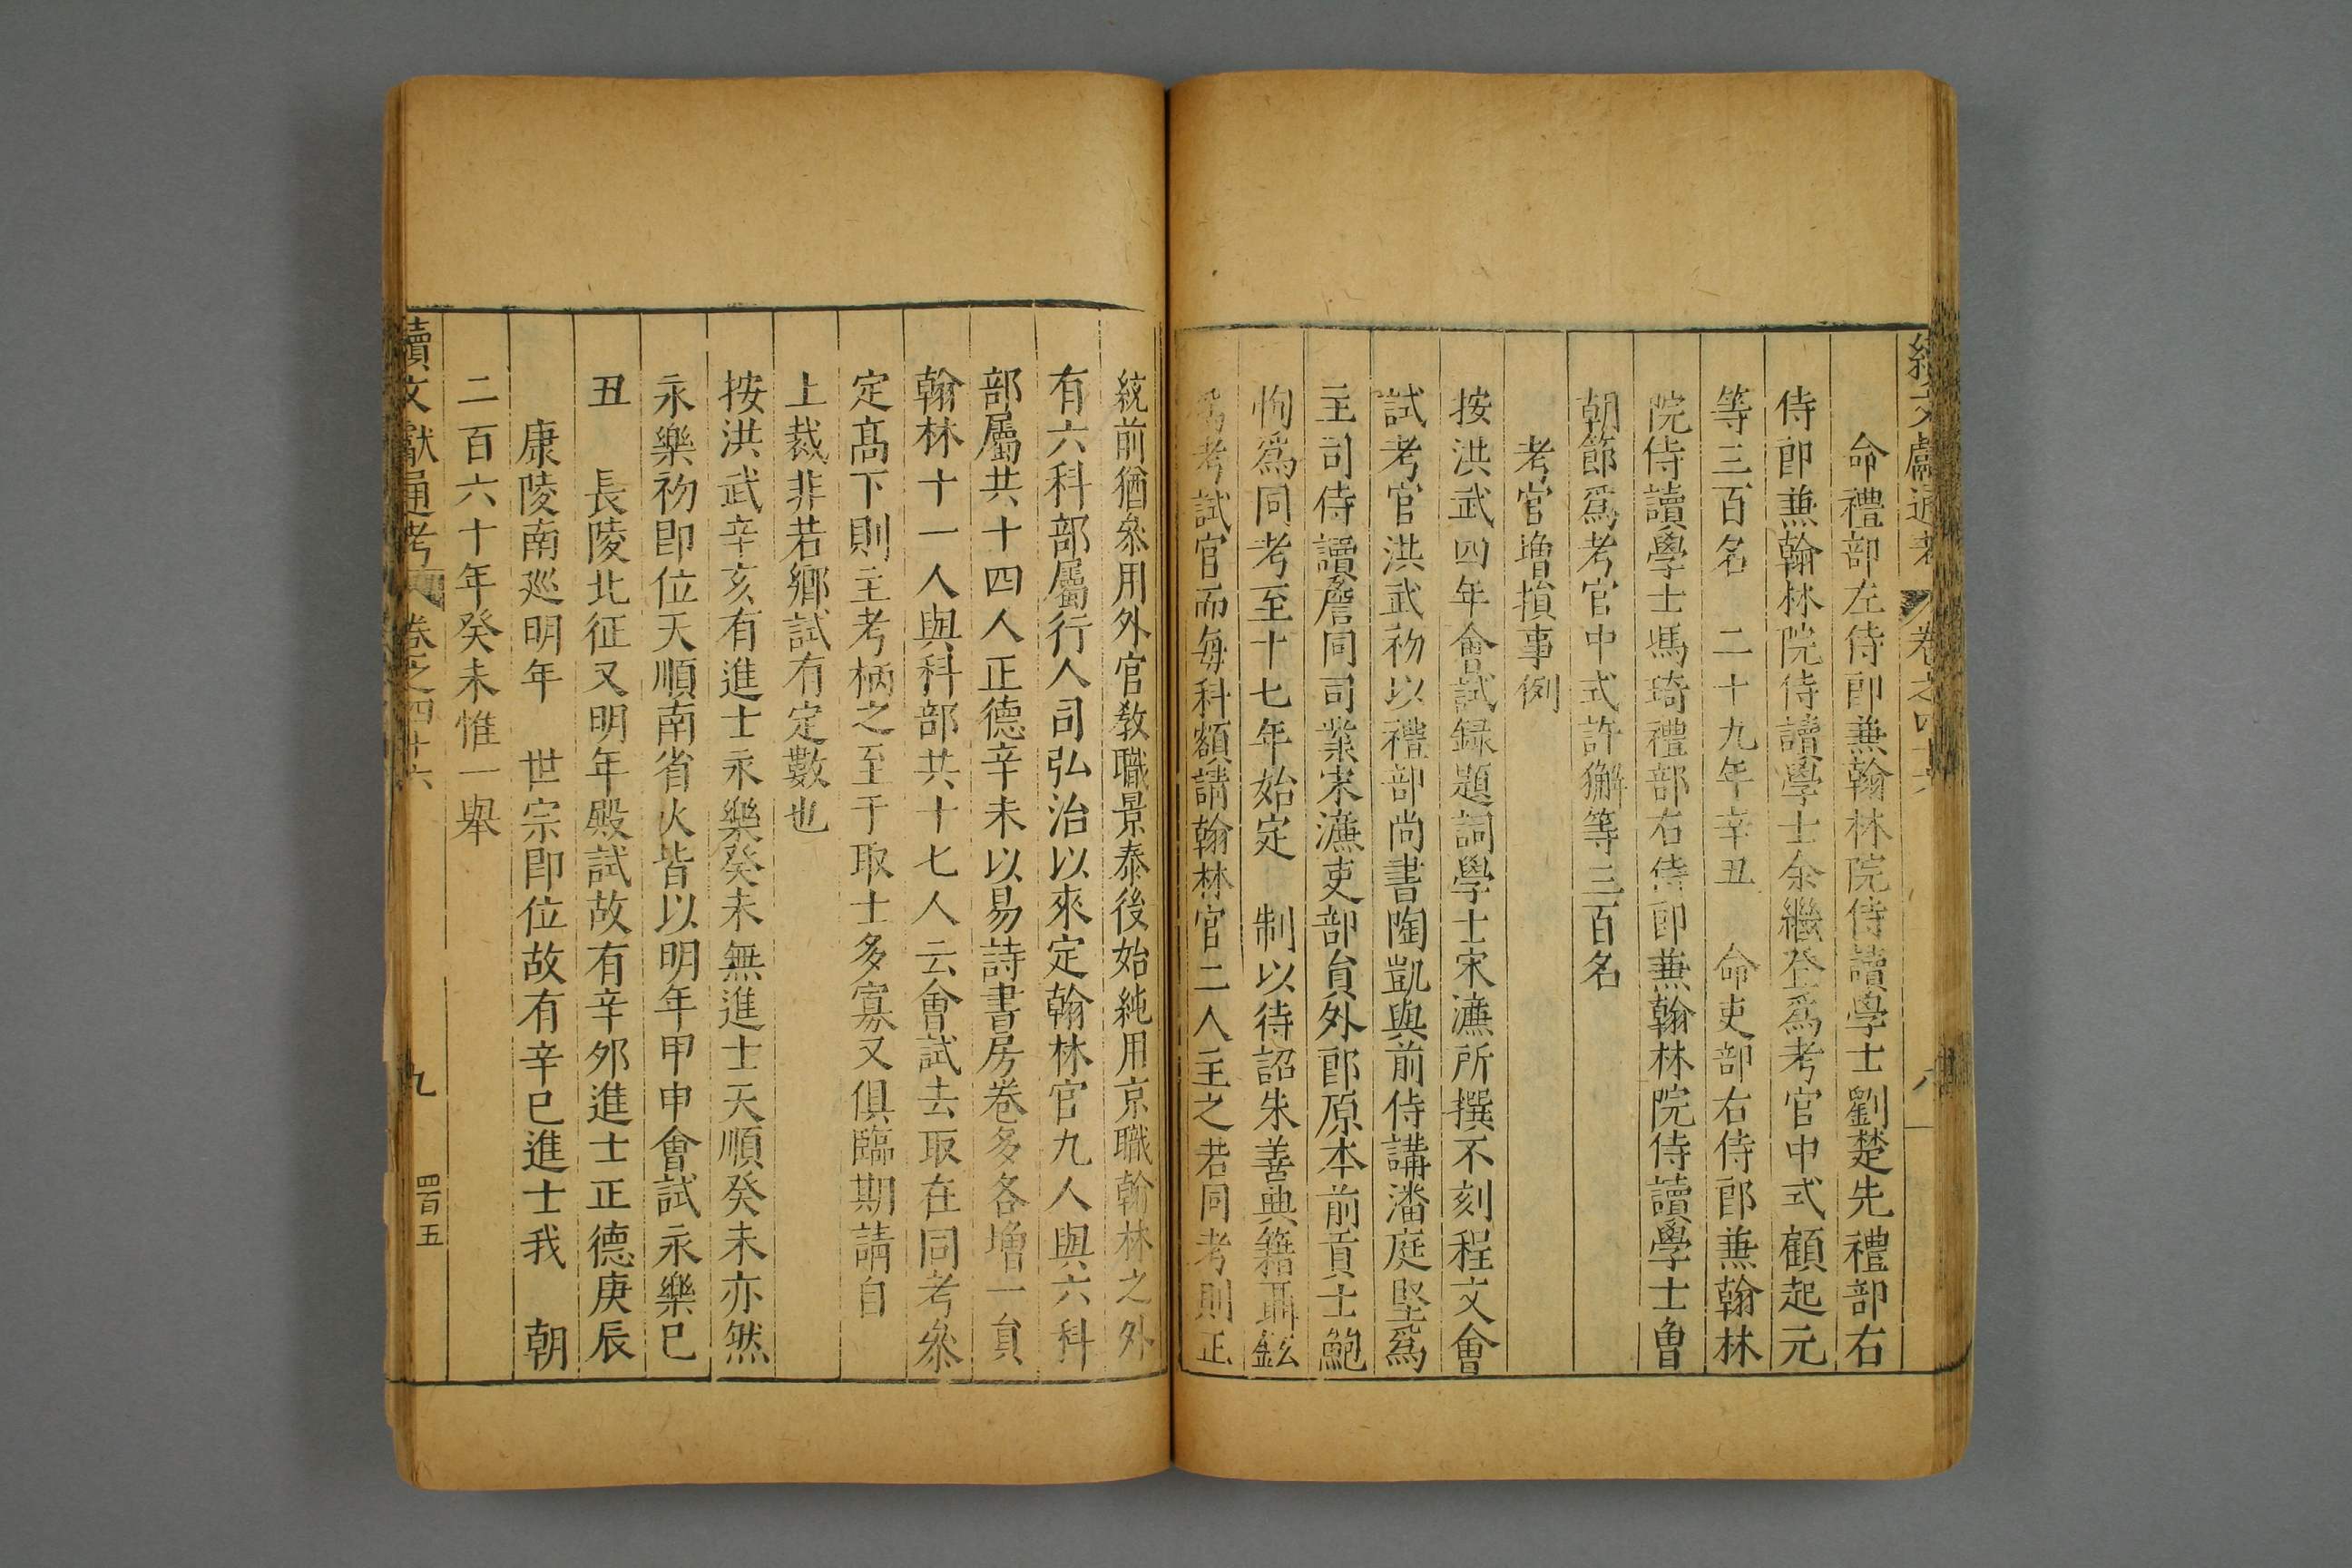 續文獻通考 卷之四十六 八
命禮部左侍郎兼翰林院侍讀學士劉楚先禮部右
侍郎兼翰林院侍讀學士余繼登爲考官中式顧起元
等三百名 二十九年辛丑 命吏部右侍郎兼翰林
院侍讀學士馮琦禮部右侍郎兼翰林院侍讀學士曾
朝節爲考官中式許獬等三百名
考官增損事例
按洪武四年會試録題詞學士宋濂所撰不刻程文會
試考官洪武初以禮部尚書陶凱與前侍講潘庭堅爲
主司侍讀詹同司業宋濂吏部貟外郎原本前貢士鮑
恂爲同考至十七年始定 制以待詔朱善典籍聶鉉
爲考試官而每科額請翰林官二人主之若同考則正
統前猶叅用外官敎職景泰後始純用京職翰林之外
有六科部屬行人司弘治以來定翰林官九人與六科
部屬共十四人正德辛未以易詩書房卷多各增一貟
翰林十一人與科部共十七人云會試去取在同考叅
定髙下則主考柄之至于取士多寡又俱臨期請自
上裁非若鄉試有定數也
按洪武辛亥有進士永樂癸未無進士天順癸未亦然
永樂初即位天順南省火皆以明年甲申會試永樂已
丑 長陵北征又明年殿試故有辛夘進士正德庚辰
康陵南廵明年 世宗即位故有辛巳進士我 朝
二百六十年癸未惟一舉
續文獻通考 卷之四十六 九 四百五